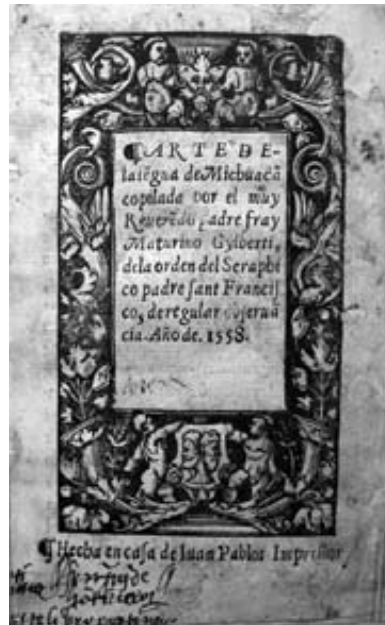 ¶ARTE DE-
la lẽgua de Michuacã
copilada por el muy
Reuerẽdo padre fray
Maturino Gylberti,
dela orden del Seraphi
co padre sant Francis
co, de regular obseruã
cia. Año de. 1558.
¶Hecha en casa de Iuan Pablos Impressor